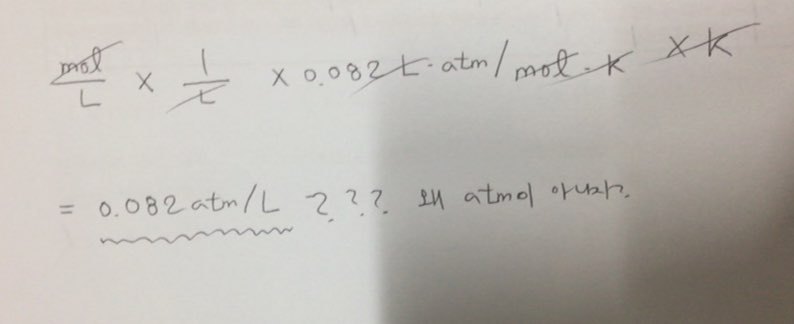 mol/L × 1/L × 0.082 L·atm/mol·K × K
= 0.082 atm/L ??? 왜 atm이 아니지?